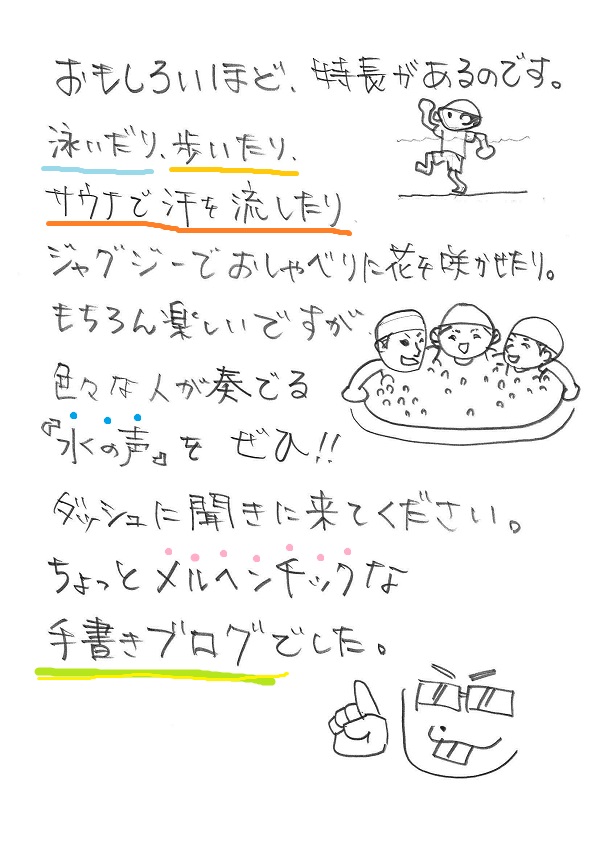 おもしろいほど、特長があるのです。
泳いだり、歩いたり、
サウナで汗を流したり
ジャグジーでおしゃべりに花を咲かせたり。
もちろん楽しいですが
色々な人が奏でる
『水の声』を ぜひ!!
ダッシュに聞きに来てください。
ちょっとメルヘンチックな
手書きブログでした。